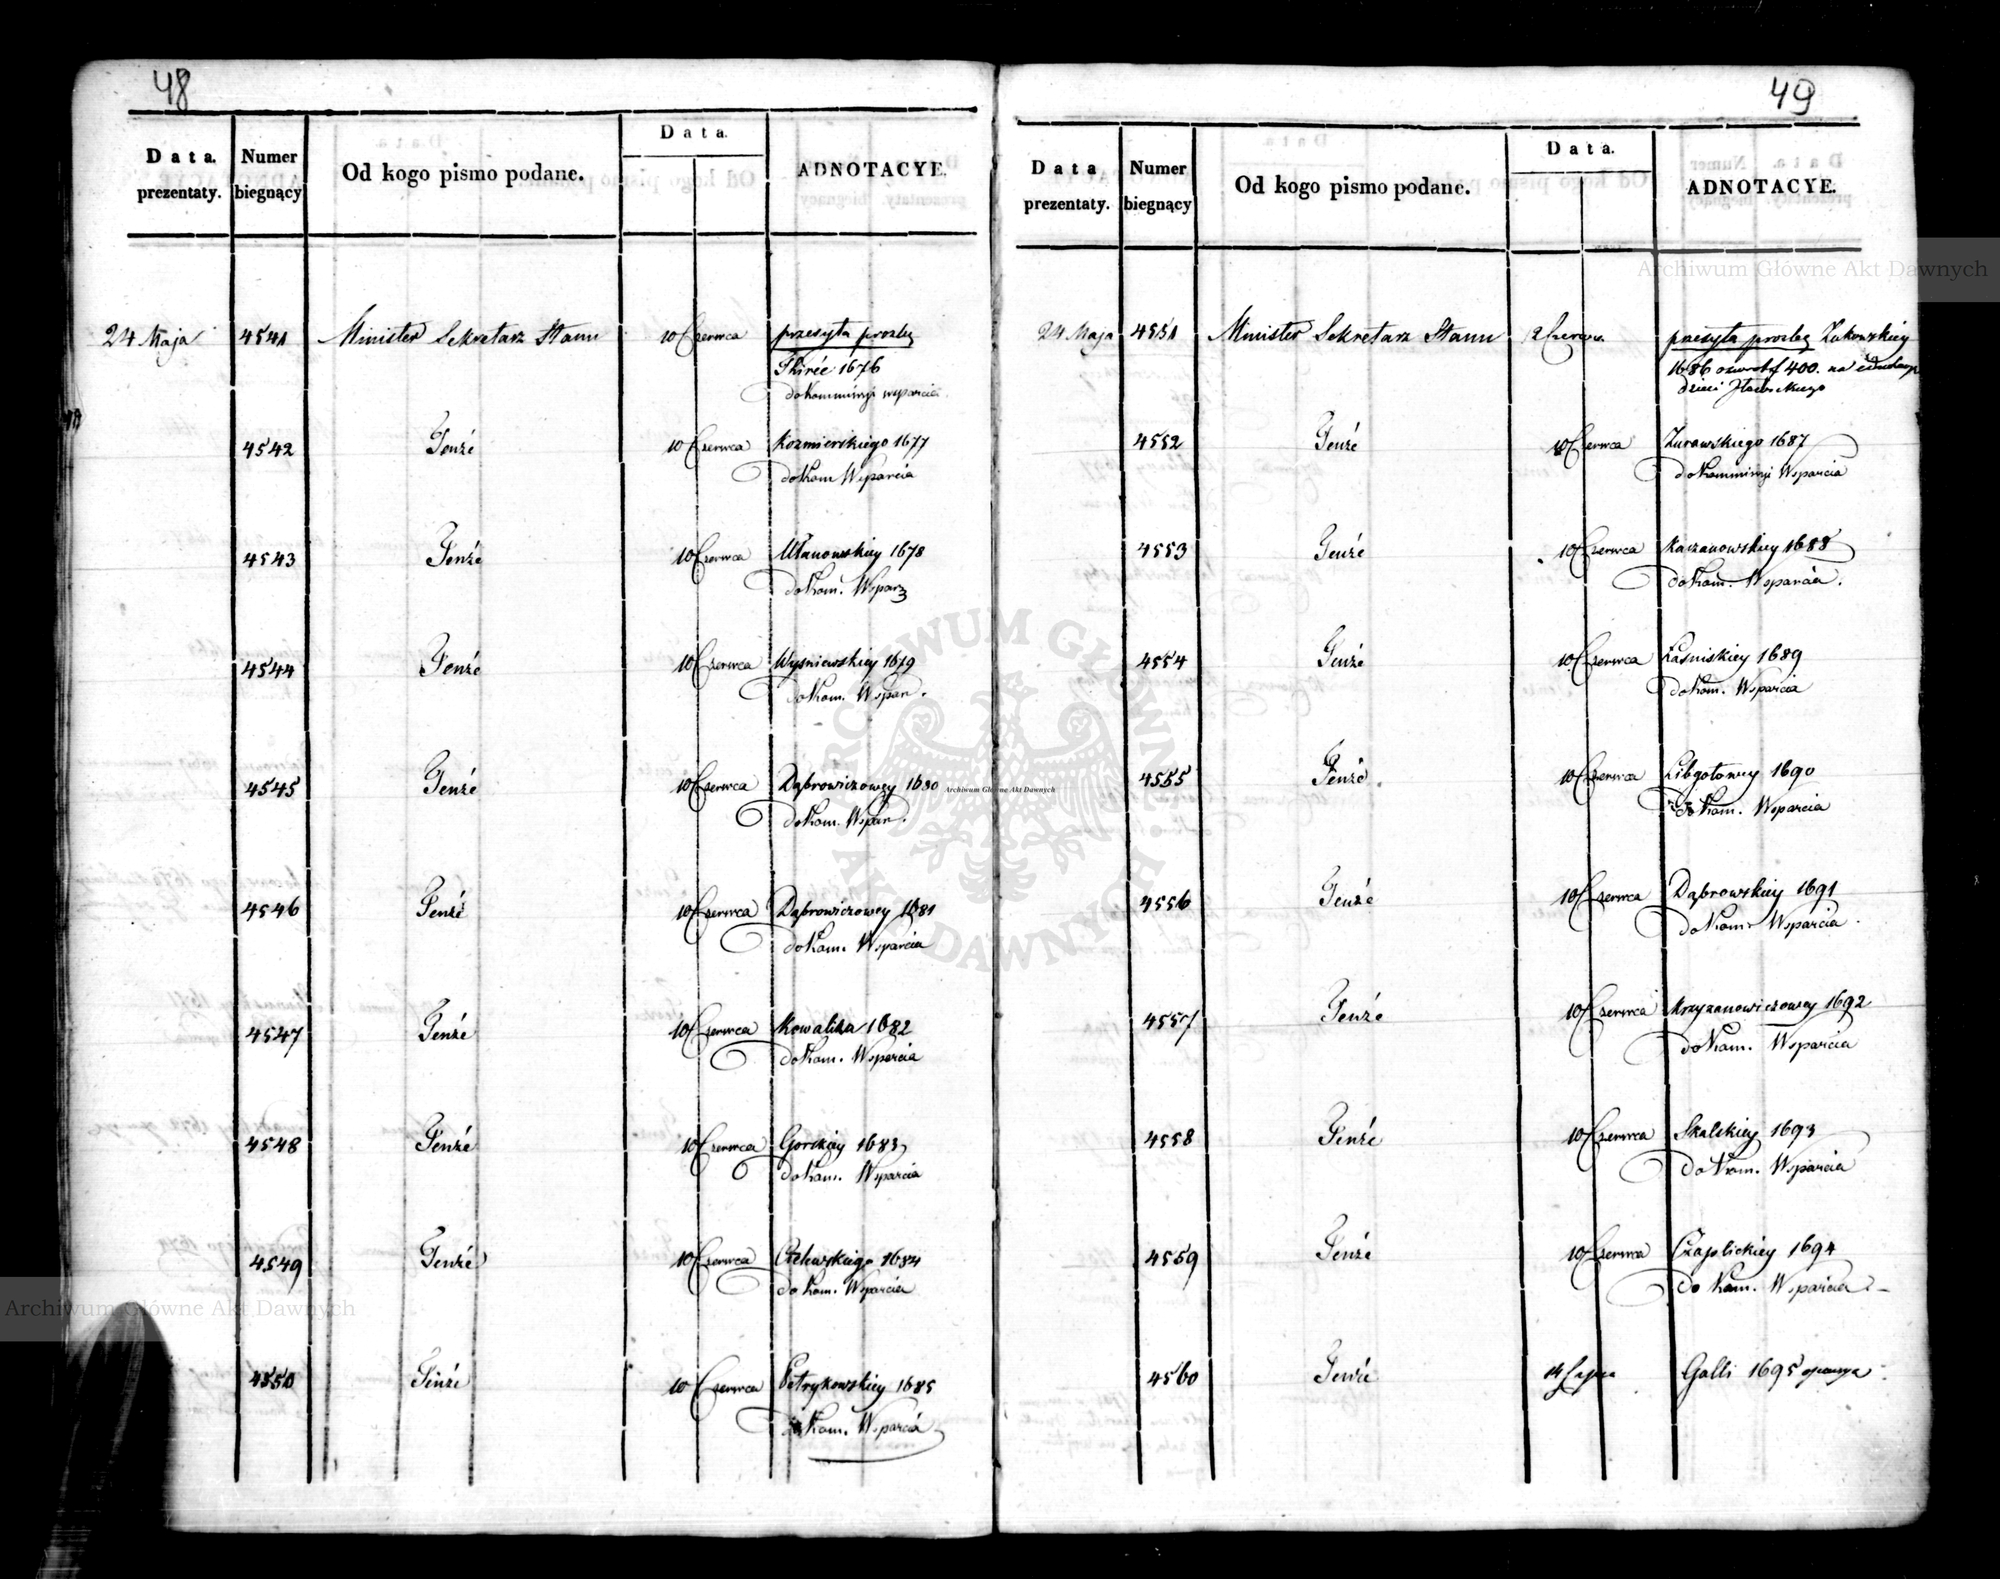 48
Data. prezentaty.
Numer biegnący
Od kogo pismo podane.
Data.
ADNOTACYE.
24 Maja 4541 Minister Sekretarz Stanu 10 Czerwca przesyła prozbę
1676
do Kommissyi wsparcia
4542 Tenże 10 Czerwca Kozmierskiego 1677
do Kom Wsparcia
4543 Tenże 10 Czerwca Ułanowskiey 1678
do Kom. Wspar
4544 Tenże 10 Czerwca Wyśniewskiey 1679
do Kom. Wspar.
4545 Tenże 10 Czerwca Dąbrowiczowey 1680
do Kom. Wspar.
4546 Tenże 10 Czerwca Dąbrowiczowey 1681
do Kom. Wsparcia
4547 Tenże 10 Czerwca Kowalika 1682
do Kom. Wsparcia
4548 Tenże 10 Czerwca Gorskiey 1683
do Kom. Wsparcia
4549 Tenże 10 Czerwca 1684
do Kom. Wsparcia
4550 Tenże 10 Czerwca Petrykowskiey 1685
do Kom. Wsparcia
49
Data prezentaty.
Numer biegnący
Od kogo pismo podane.
Data.
ADNOTACYE.
24 Maja 4551 Minister Sekretarz Stanu 12 Czerw. przesyła prozbę Żukowskiey
1686 400. na
dzieci
4552 Tenże 10 Czerwca Żurawskiego 1687
do Kommissyi Wsparcia
4553 Tenże 10 Czerwca Kaczanowskiey 1688
do Kom. Wsparcia.
4554 Tenże 10 Czerwca Łaśniskiey 1689
do Kom. Wsparcia
4555 Tenże 10 Czerwca Libgotowey 1690
do Kom. Wsparcia
4556 Tenże 10 Czerwca Dąbrowskiey 1691
do Kom. Wsparcia
4557 Tenże 10 Czerwca Krzyżanowiczowey 1692
do Kom. Wsparcia
4558 Tenże 10 Czerwca Skalskiey 1693
do Kom. Wsparcia
4559 Tenże 10 Czerwca Czaplickiey 1694
do Kom. Wsparcia
4560 Tenże 14 Lipca Galli 1695
Archiwum Główne Akt Dawnych
Archiwum Główne Akt Dawnych
Archiwum Główne Akt Dawnych
ARCHIWUM GŁÓWNE AKT DAWNYCH